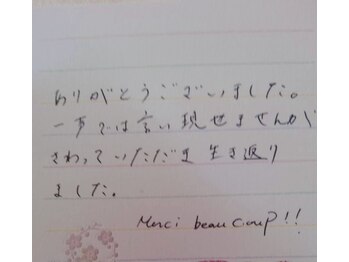 ありがとうございました。
一言では言い現せませんが
さわっていただき生き返り
ました。
Merci beaucoup!!